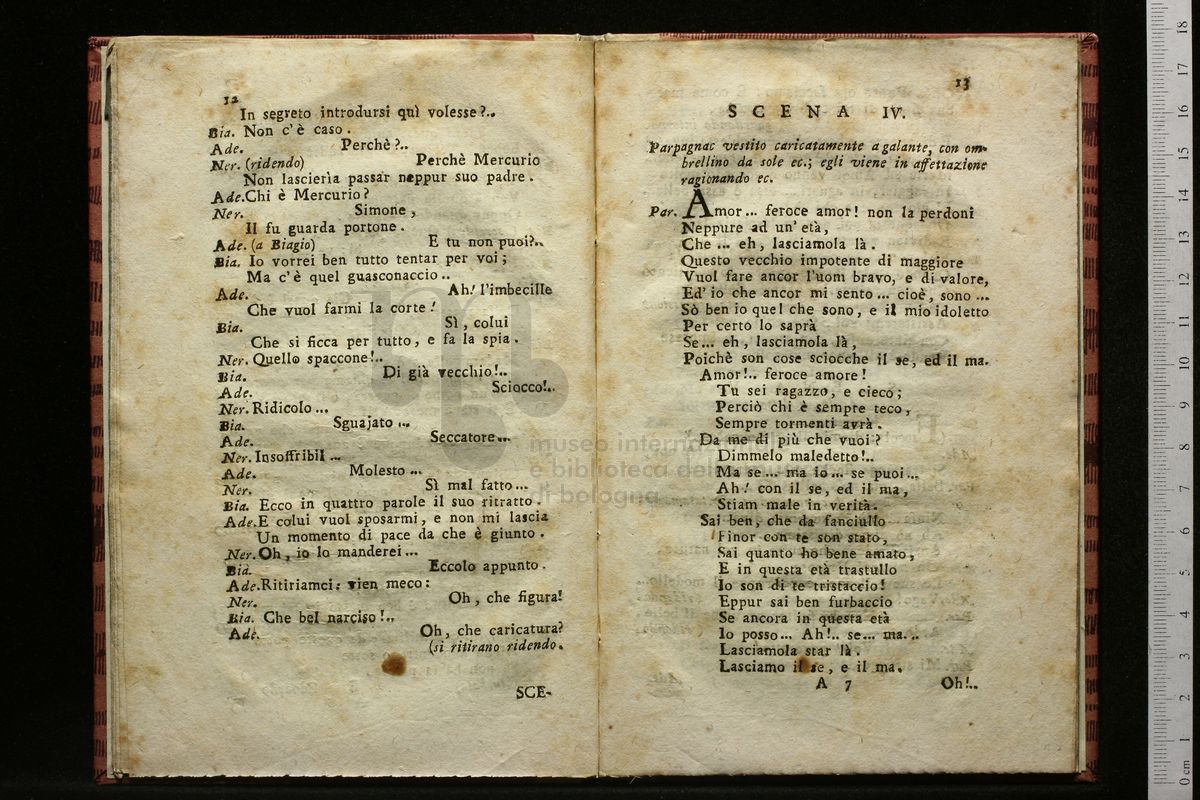 12
In segreto introdursi quì volesse?..
Bia. Non c'è caso.
Ade. Perchè?..
Ner. (ridendo) Perchè Mercurio
Non lascierìa passar neppur suo padre.
Ade. Chi è Mercurio?
Ner. Simone,
Il fu guarda portone.
Ade. (a Biagio) E tu non puoi?..
Bia. Io vorrei ben tutto tentar per voi;
Ma c'è quel guasconaccio..
Ade. Ah! l'imbecille
Che vuol farmi la corte!
Bia. Sì, colui
Che si ficca per tutto, e fa la spia.
Ner. Quello spaccone!..
Bia. Di già vecchio!..
Ade. Sciocco!..
Ner. Ridicolo...
Bia. Sguajato...
Ade. Seccatore...
Ner. Insoffribil...
Ade. Molesto...
Ner. Sì mal fatto...
Bia. Ecco in quattro parole il suo ritratto.
Ade. E colui vuol sposarmi, e non mi lascia
Un momento di pace da che è giunto.
Ner. Oh, io lo manderei...
Bia. Eccolo appunto.
Ade. Ritiriamci: vien meco:
Ner. Oh, che figura!
Bia. Che bel narciso!..
Ade. Oh, che caricatura?
(si ritirano ridendo.
SCE-
13
SCENA IV.
Parpagnac vestito caricatamente a galante, con om-
brellino da sole ec.; egli viene in affettazione
ragionando ec.
Par. Amor... feroce amor! non la perdoni
Neppure ad un' età,
Che ... eh, lasciamola là.
Questo vecchio impotente di maggiore
Vuol fare ancor l'uom bravo, e di valore,
Ed' io che ancor mi sento... cioè, sono...
Sò ben io quel che sono, e il mio idoletto
Per certo lo saprà
Se... eh, lasciamola là,
Poichè son cose sciocche il se, ed il ma.
Amor!.. feroce amore!
Tu sei ragazzo, e cieco;
Perciò chi è sempre teco,
Sempre tormenti avrà.
Da me di più che vuoi?
Dimmelo maledetto!..
Ma se... ma io... se puoi...
Ah! con il se, ed il ma,
Stiam male in verità.
Sai ben, che da fanciullo
Finor con te son stato,
Sai quanto ho bene amato,
E in questa età trastullo
Io son di te tristaccio!
Eppur sai ben furbaccio
Se ancora in questa età
Io posso... Ah!.. se... ma...
Lasciamola star là.
Lasciamo il se, e il ma.
A 7 Oh!..
museo internaz
e biblioteca de
di bologna
0 cm 1 2 3 4 5 6 7 8 9 10 11 12 13 14 15 16 17 18